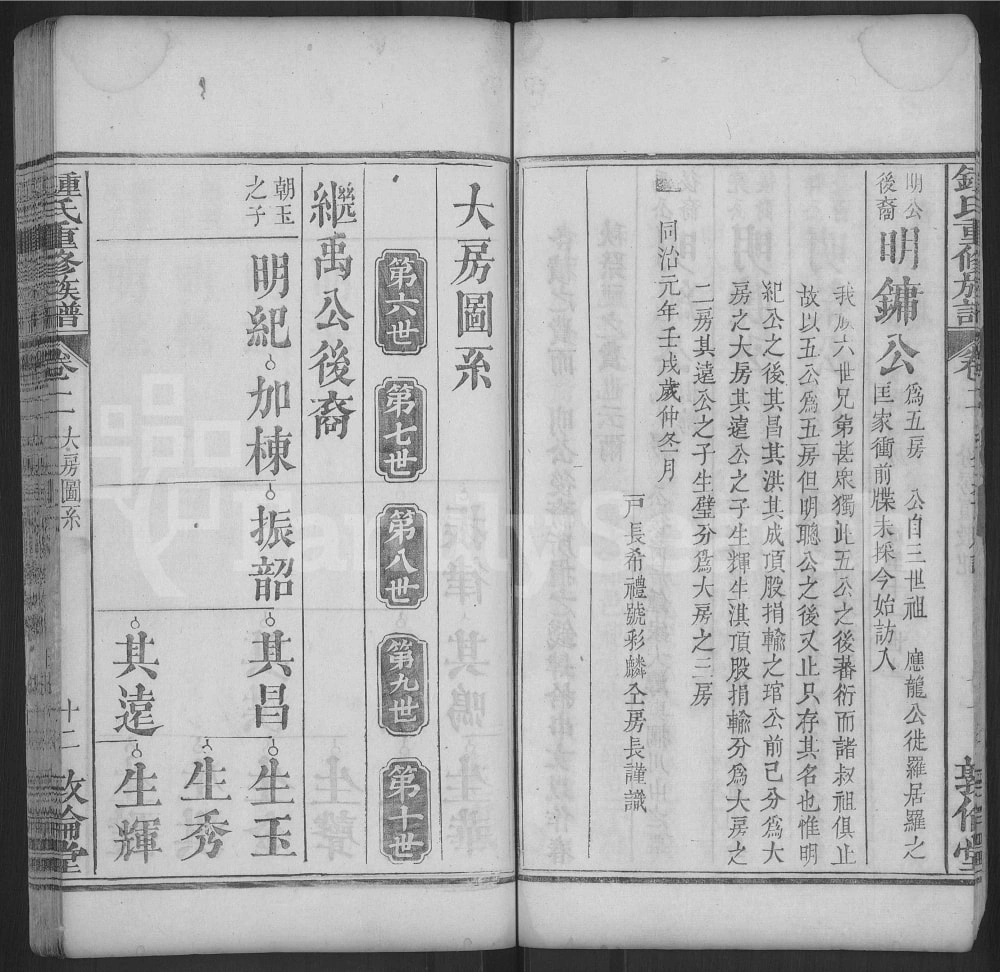 明公
後裔
明鏞公
為五房 公自三世祖 應龍公徙羅居羅之
匡家衝前牒未採今始訪入
我族六世兄弟甚衆獨此五公之後蕃衍而諸叔祖俱止
故以五公爲五房但明聰公之後又止只存其名也惟明
紀公之後其昌其洪其成頂股捐輸之琯公前己分爲大
房之大房其遠公之子生輝生淇頂股捐輸分爲大房之
二房其遠公之子生璧分爲大房之三房
同治元年壬戌歲仲冬月
戸長希禮號彩麟仝房長謹識
大房圖系
第六世
第七世
第八世
第九世
第十世
繼禹公後裔
朝玉
之子
明紀
加棟
振韶
其昌
生玉
生秀
其遠
生輝
鍾氏重修族譜
卷二
大房圖系
十二
敦倫堂